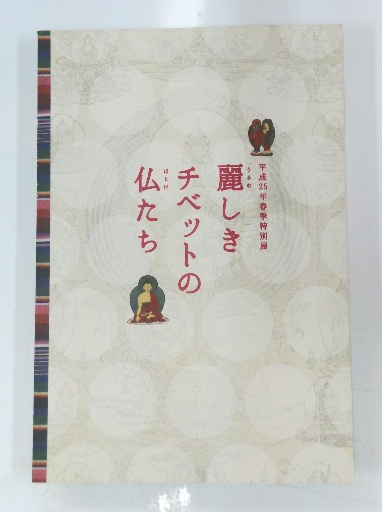 平成25年春季特別展
麗しき
うるわ
チベットの
仏たち
ほとけ